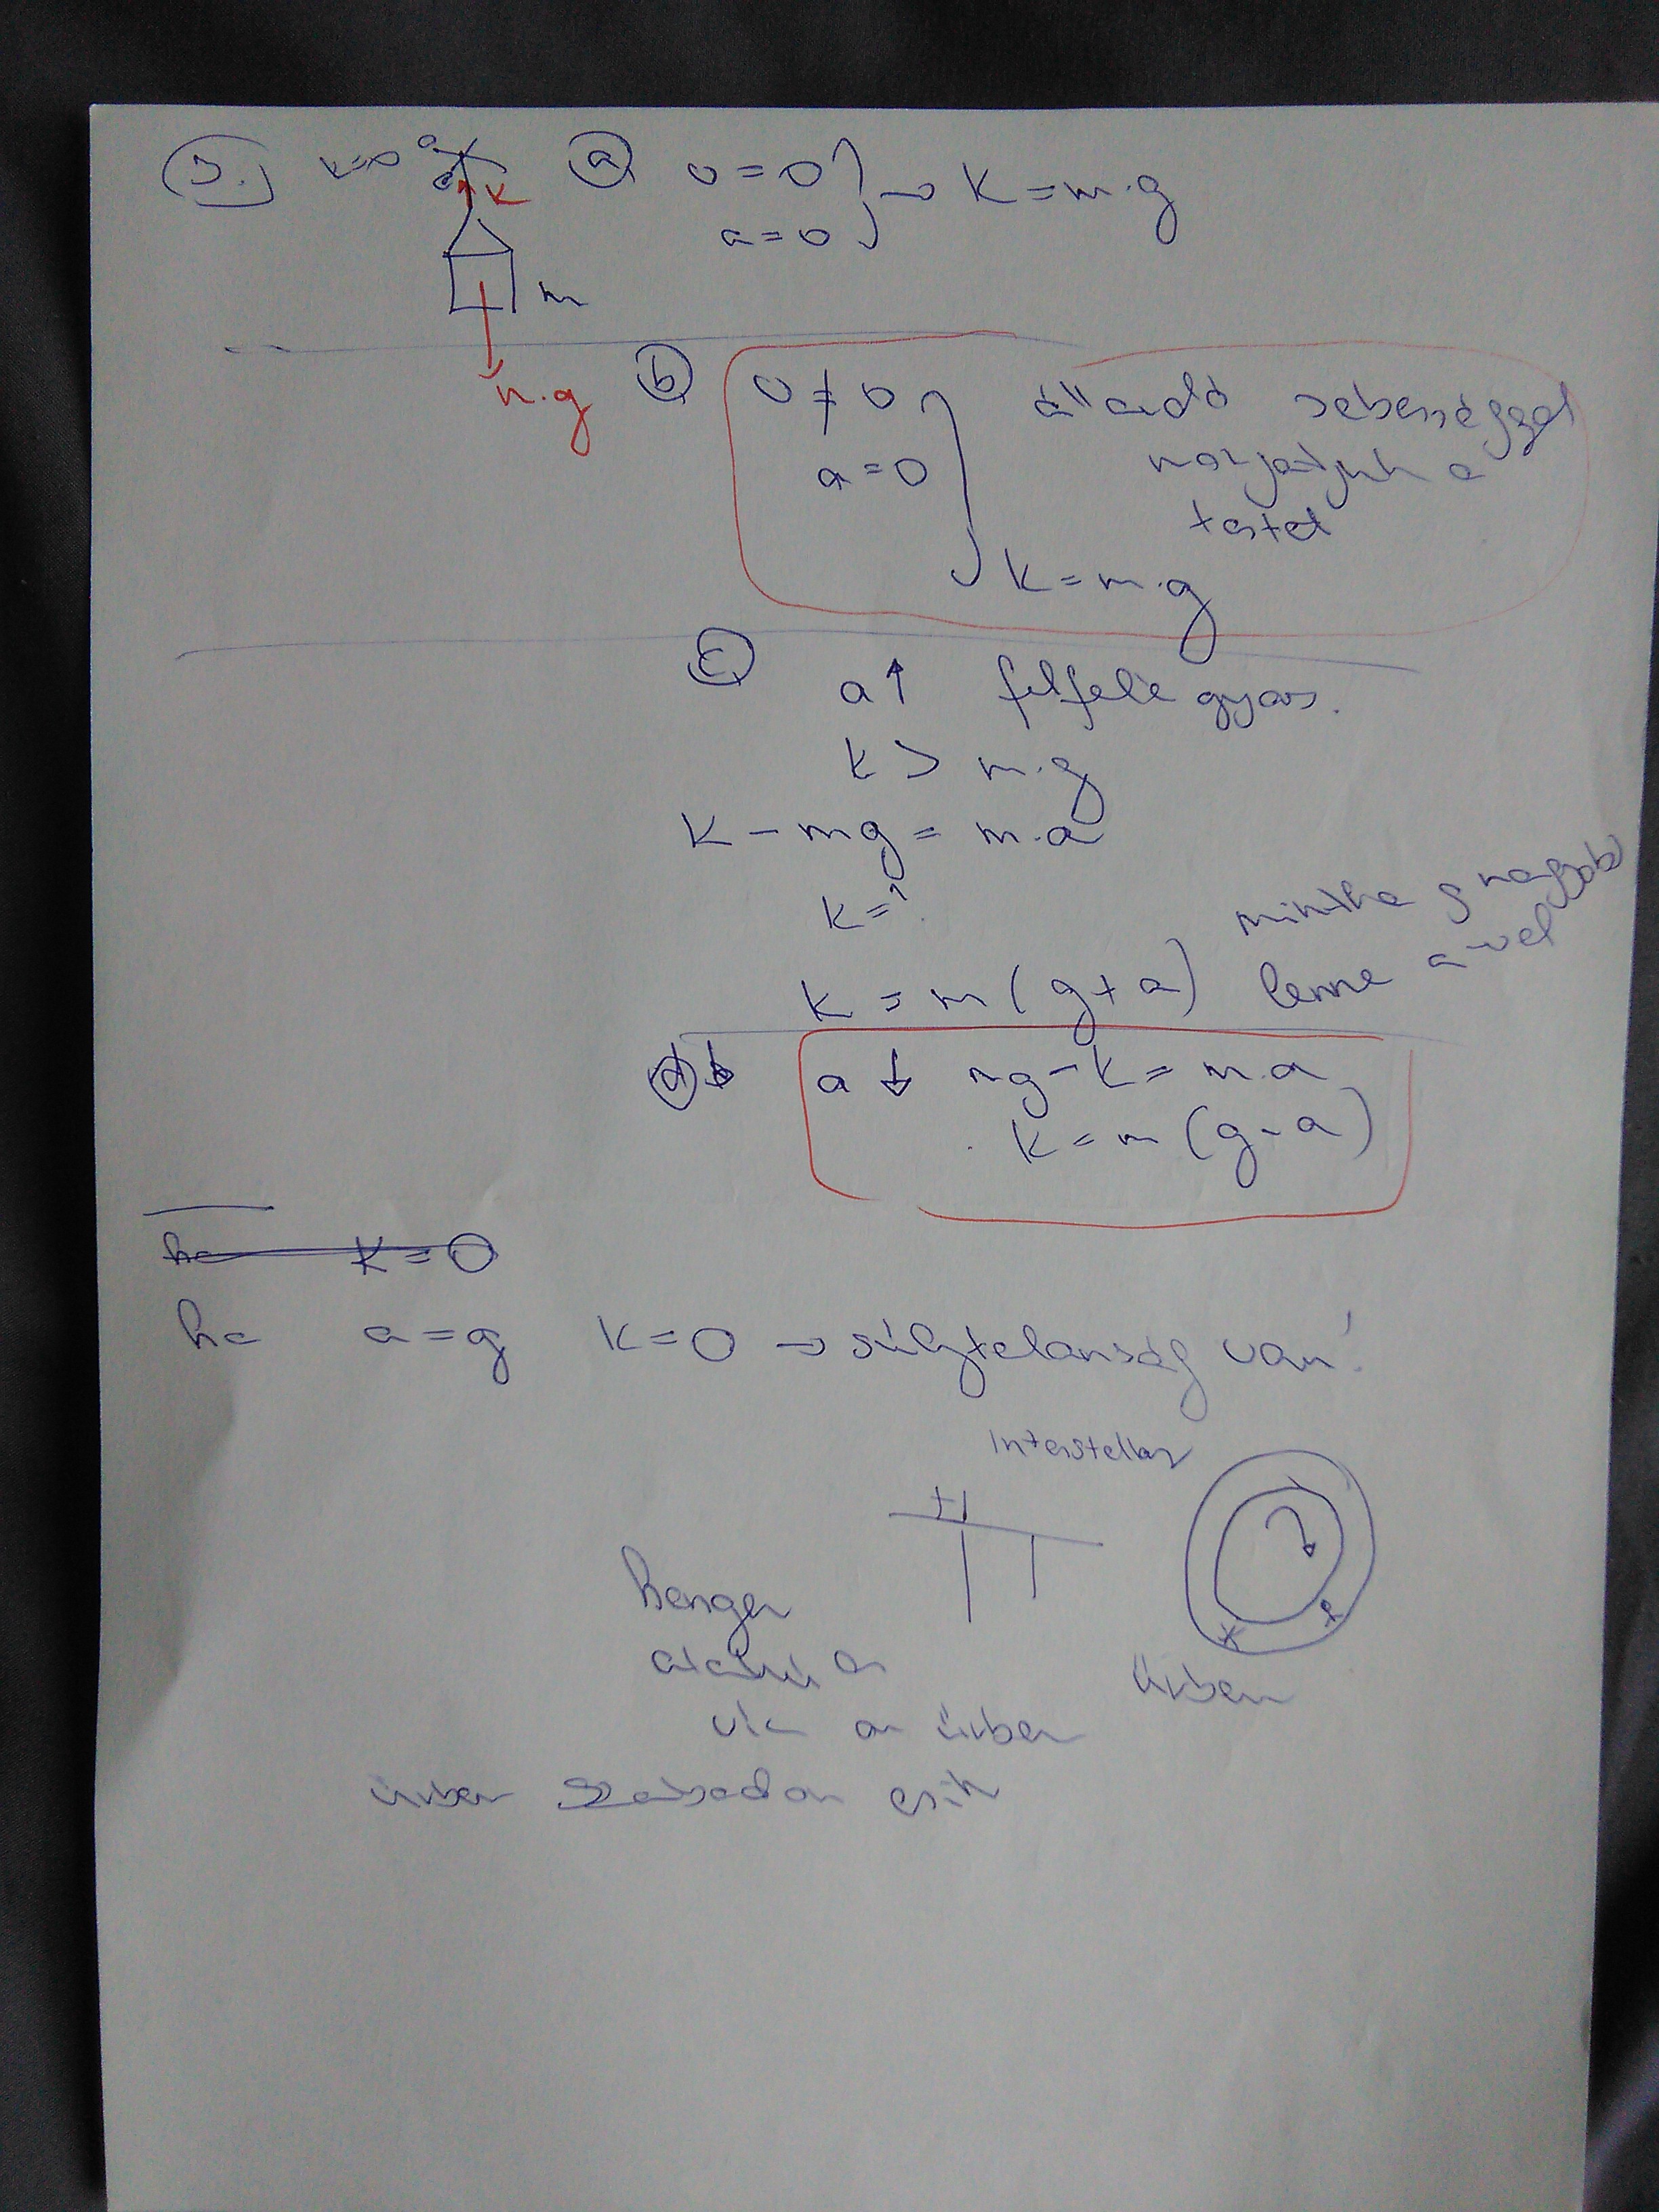 3.) K=0 K ⓐ v = 0 → K = m·g
a = 0
m
m·g
ⓑ v ≠ 0 állandó sebességgel
a = 0 mozgatjuk a
testet
K = m·g
ⓒ
a↑ felfelé gyors.
K > m·g
K − mg = m·a
K = ?
mintha g nagyobb
K = m(g+a) lenne a-val
ⓓ a ↓ mg − K = m·a
K = m(g−a)
ha K = 0
ha a = g K = 0 → súlytalanság van!
Interstellar
Henger
alakú
űrben
az űrben
űrben szabadon esik